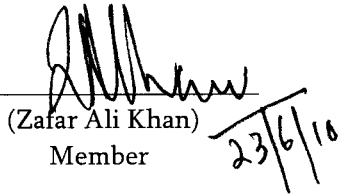 (Zafar Ali Khan)
Member
23/6/10